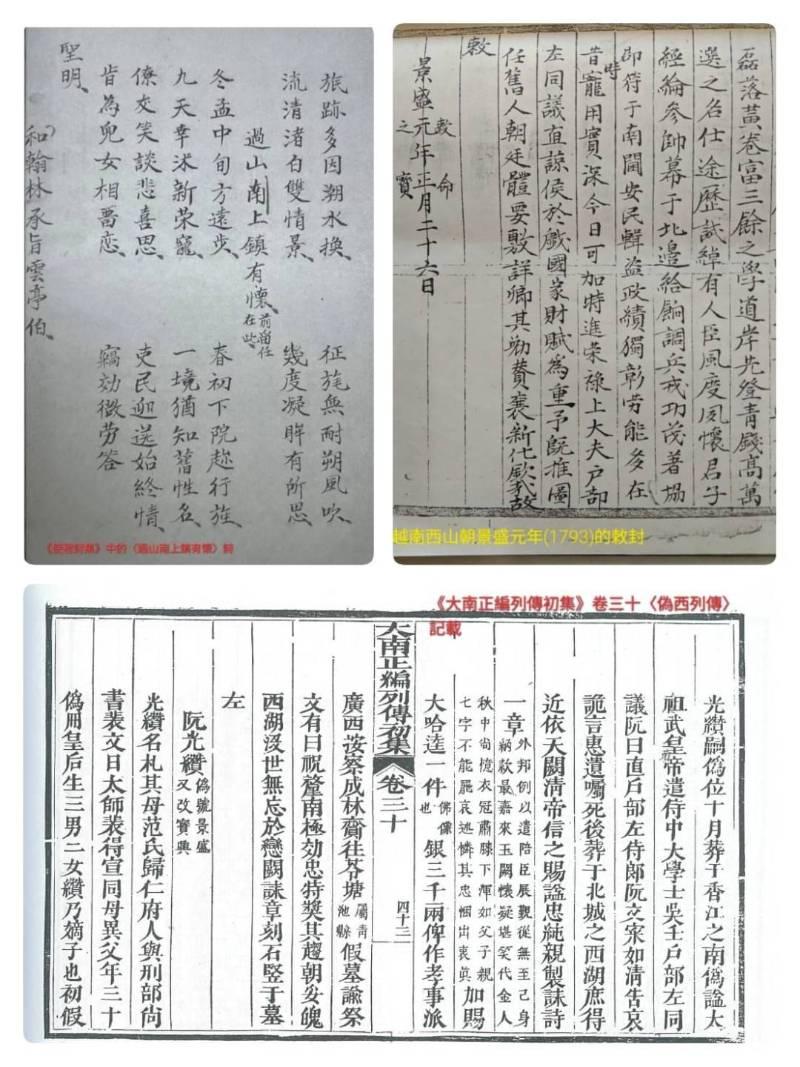 旅跡多因朔水換、 征旄無耐朔風吹、
流清渚白雙情景、 幾度凝眸有所思
過山南上鎮有懷 前留任在些
冬孟中旬方遠步、 春初下院趂行旌
九天幸沐新荣寵、 一境猶知舊性名、
僚交笑談悲喜思、 吏民迎送始終情、
皆為兒女相畱恋、 竊効微劳答
聖明、
和翰林承旨雲亭伯、
中的〈過山南上鎮有懷〉詞
磊落黃卷富三餘之學道岸先登青錢高萬
選之名仕途歷試綽有人臣風度夙懷君子
經綸參帥幕于北邊給餉調兵戎功茂著塲
即符于南閫安民輯盜政績獨彰劳能多在
昔時寵用實深今日可加特進荣祿上大夫户部
左同議直諒侯於戲國家財賦為重予既推圖
任舊人朝廷體要敷詳卿其勷賛襄新化欽哉故
敕
景盛元年正月二十六日
敕命之寶
越南西山朝景盛元年(1793)的敕封
《大南正編列傳初集》卷三十〈偽西列傳〉
記載
光纘嗣偽位十月葬于香江之南偽謚太
祖武皇帝遣侍中大學士吳壬户部左同
議阮曰直户部左侍郎阮文案如清告哀
詭言惠遺囑死後葬于北城之西湖庶得
近依天闕清帝信之賜謚忠純親製誄詩
一章 外邦例以遣陪臣展覲從無至己身納款最嘉來玉闕懷疑堪笑代金人
秋中尚憶衣冠肅膝下渾如父子親七字不能罷哀述憐其忠悃出衷眞 加賜
大哈逵一件 佛像也 銀三千兩俾作孝事派
大南正編列傳初集 卷三十 四十三
廣西按察成林齎往芩塘 屬青池縣 假墓諭祭
文有曰祝釐南極効忠特奬其趨朝妥魄
西湖沒世無忘於戀闕誄章刻石竪于墓
左
阮光纘 偽號景盛又改寶興
光纘名札其母范氏歸仁府人與刑部尚
書裴文日太師裴得宣同母異父年三十
偽冊皇后生三男二女纘乃嫡子也初假